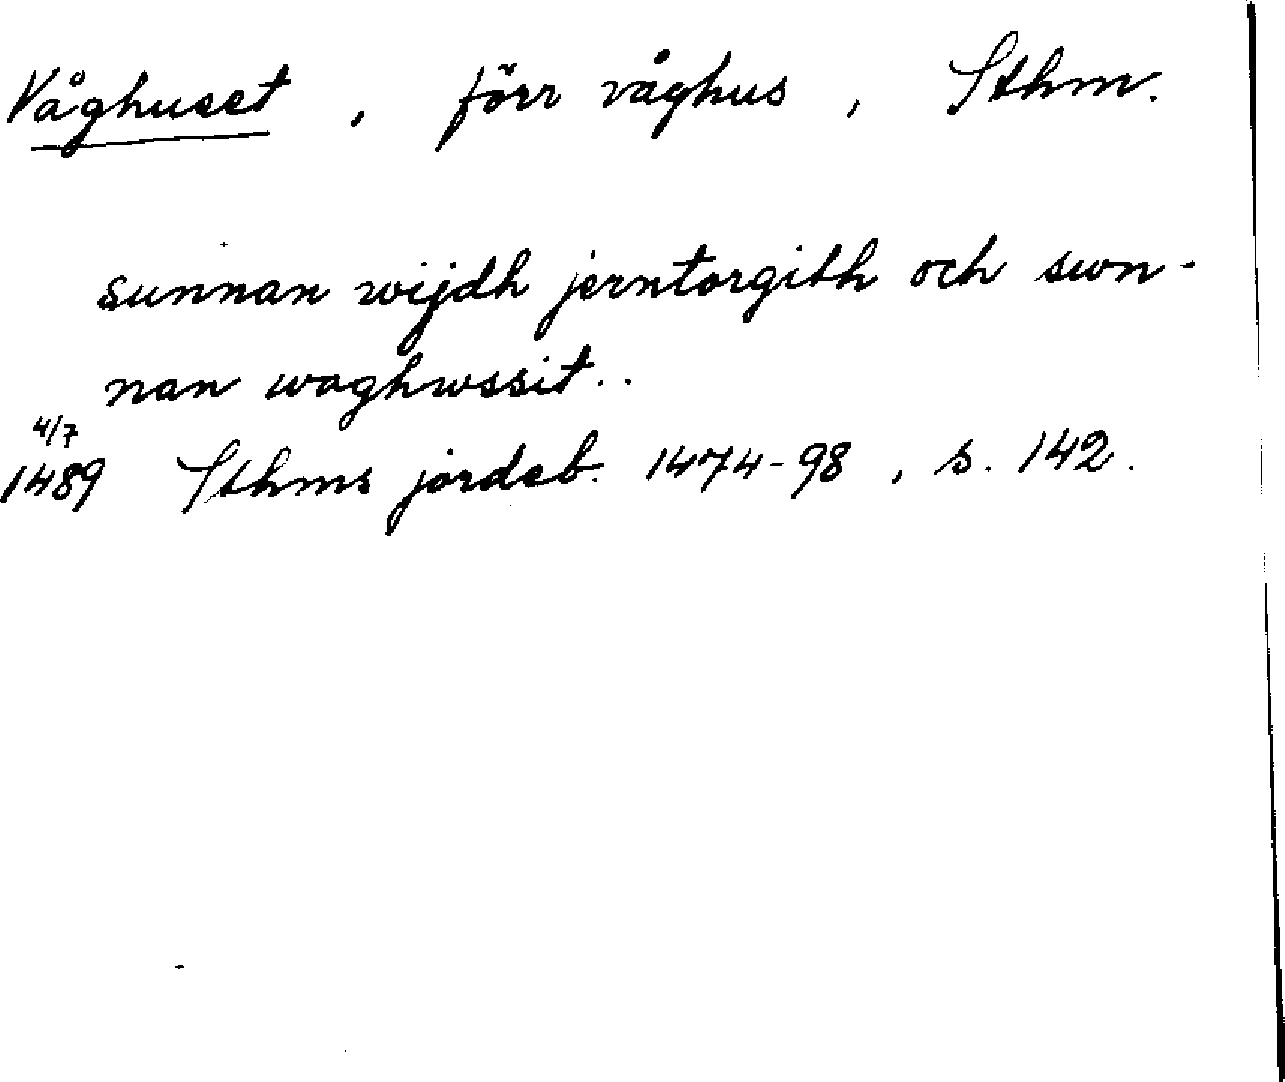 Våghuset, förr våghus, Sthm.
sunnan wijdh jerntorgith och swn-
nan waghwssit..
4/7
1489 Sthms jordeb. 1474-98, s. 142.